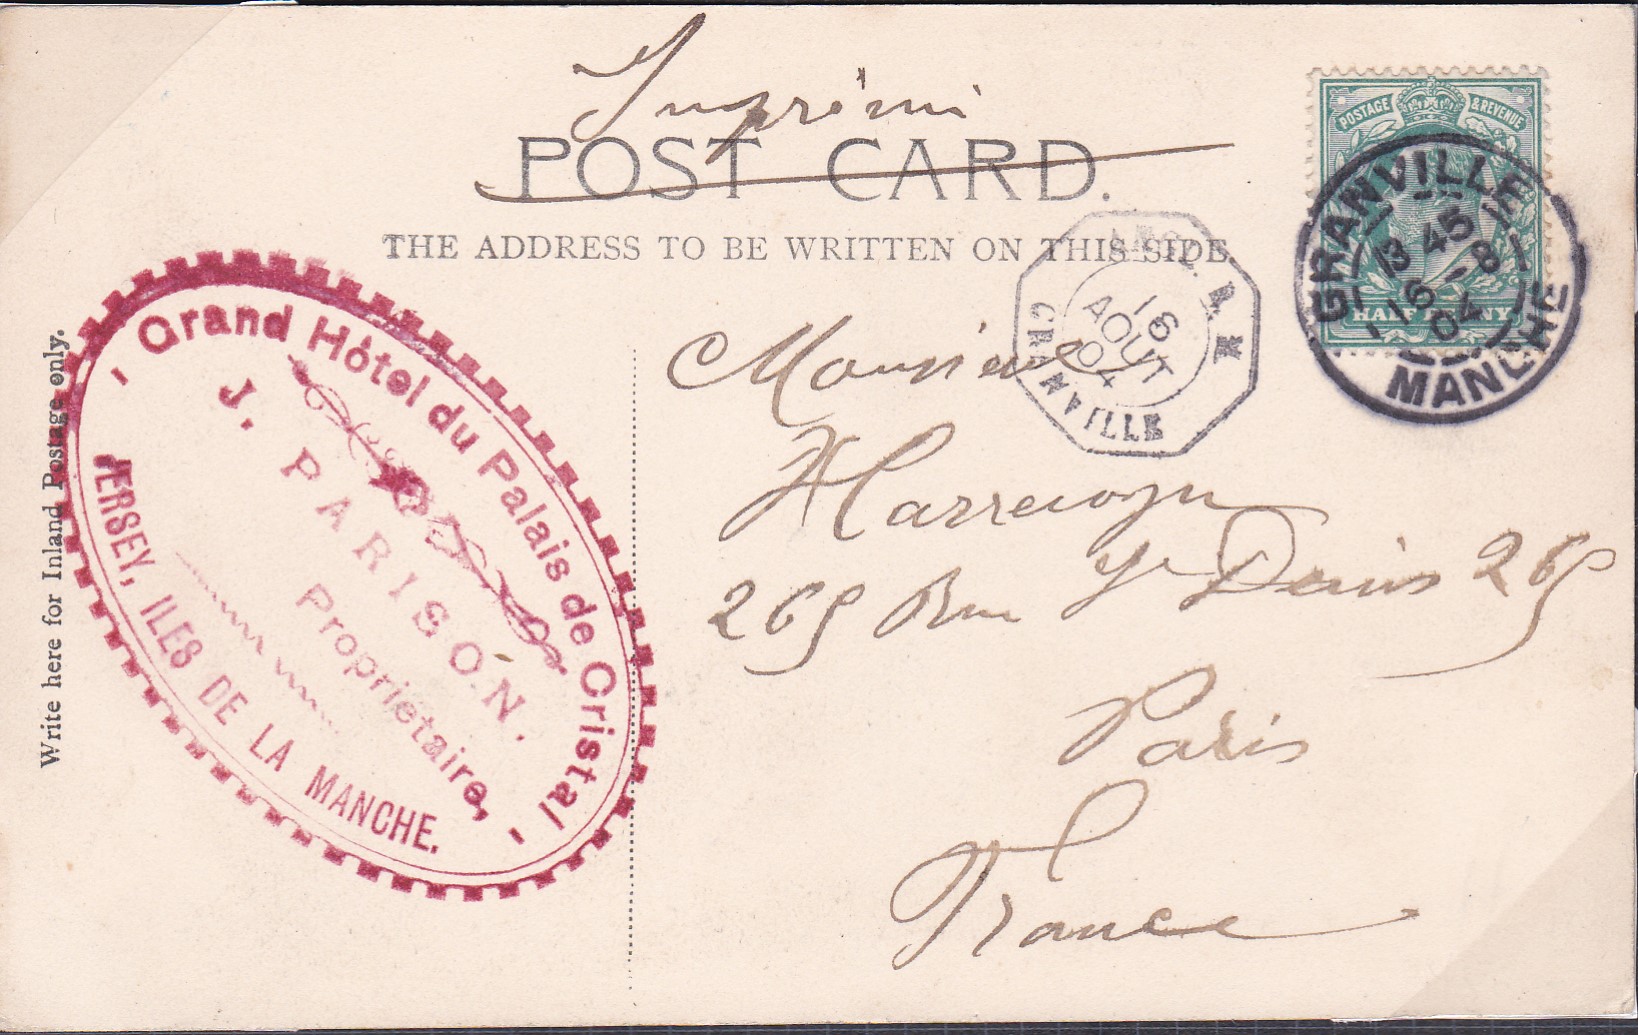 Imprimé
POST CARD.
THE ADDRESS TO BE WRITTEN ON THIS SIDE.
POSTAGE & REVENUE
HALF PENNY
GRANVILLE
13 45
16 - 8
04
MANCHE
16
AOUT
04
GRANVILLE
Write here for Inland Postage only.
- Grand Hôtel du Palais de Cristal -
J. PARISON.
Propriétaire,
JERSEY, ILES DE LA MANCHE.
Monsieur
Harrewyn
265 Rue St Denis 265
Paris
France